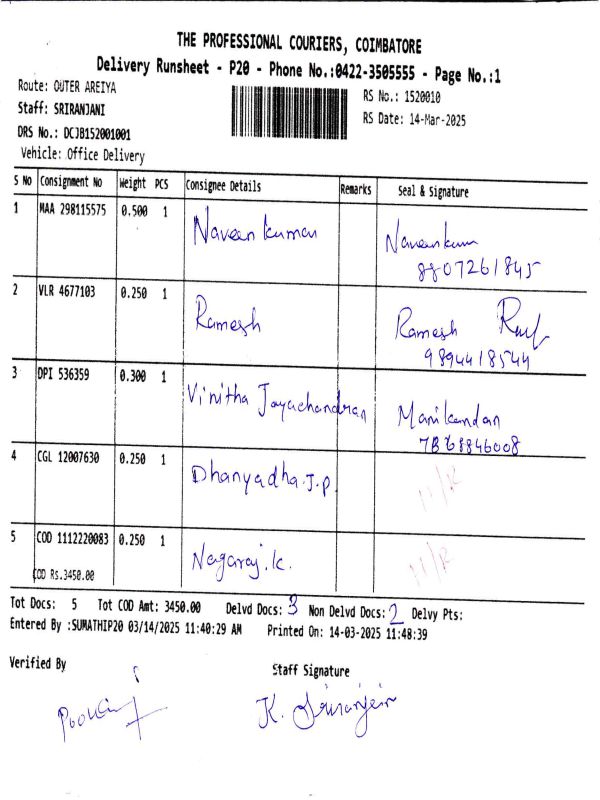 THE PROFESSIONAL COURIERS, COIMBATORE
Delivery Runsheet - P20 - Phone No.:0422-3505555 - Page No.:1
Route: OUTER AREIYA
RS No.: 1520010
Staff: SRIRANJANI
RS Date: 14-Mar-2025
DRS No.: DCJB152001001
Vehicle: Office Delivery
S No Consignment No Weight PCS Consignee Details Remarks Seal & Signature
1 MAA 298115575 0.500 1 Naveen kumar Naveenkum
8807261845
2 VLR 4677103 0.250 1 Ramesh Ramesh
9894418544
3 DPI 536359 0.300 1 Vinitha Jayachandran Manikandan
7868846008
4 CGL 12007630 0.250 1 Dhanyadha.J.P.
5 COD 1112220083 0.250 1 Nagaraj.k.
COD Rs.3450.00
Tot Docs: 5 Tot COD Amt: 3450.00 Delvd Docs: 3 Non Delvd Docs: 2 Delvy Pts:
Entered By :SUMATHIP20 03/14/2025 11:40:29 AM Printed On: 14-03-2025 11:48:39
Verified By Staff Signature
K.